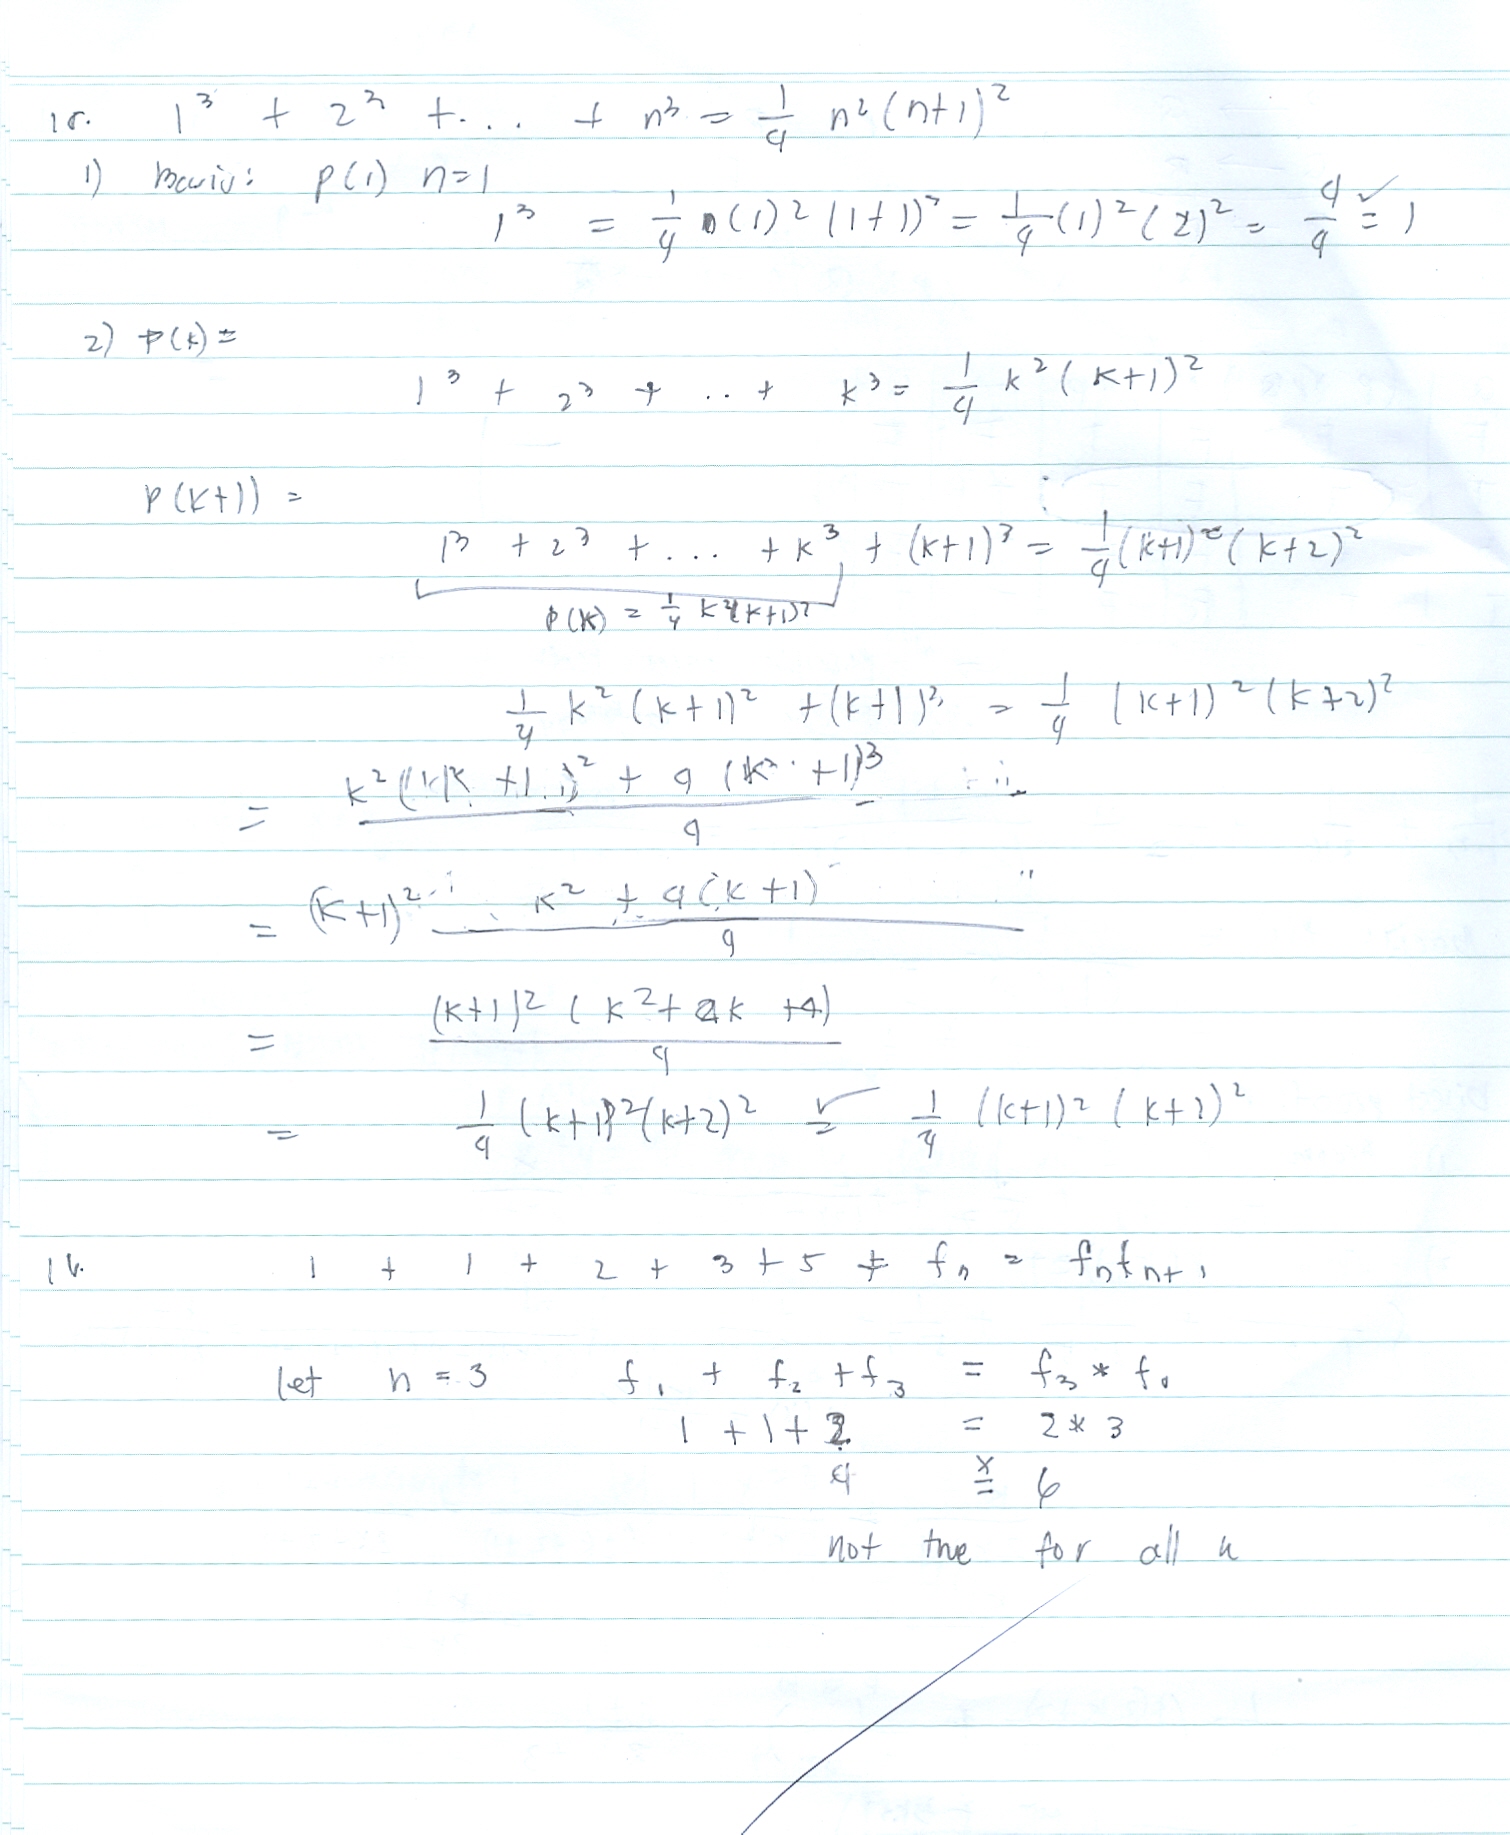 15. 1³ + 2³ + ... + n³ = 1/4 n²(n+1)²
1) Basis: P(1) n=1
1³ = 1/4 (1)²(1+1)² = 1/4 (1)²(2)² = 4/4 =✓ 1
2) P(k) =
1³ + 2³ + .. + k³ = 1/4 k²(k+1)²
P(k+1) =
1³ + 2³ + ... + k³ + (k+1)³ = 1/4 (k+1)²(k+2)²
P(k) = 1/4 k²(k+1)²
1/4 k²(k+1)² + (k+1)³ = 1/4 (k+1)²(k+2)²
= (k²(k+1)² + 4(k+1)³)/4
= (k+1)² (k² + 4(k+1))/4 "
= ((k+1)²(k²+4k+4))/4
= 1/4 (k+1)²(k+2)² =✓ 1/4 (k+1)²(k+2)²
16. 1 + 1 + 2 + 3 + 5 + fₙ = fₙfₙ₊₁
let n = 3 f₁ + f₂ + f₃ = f₃ * f
1 + 1 + 2 = 2 * 3
4 =x 6
not true for all n